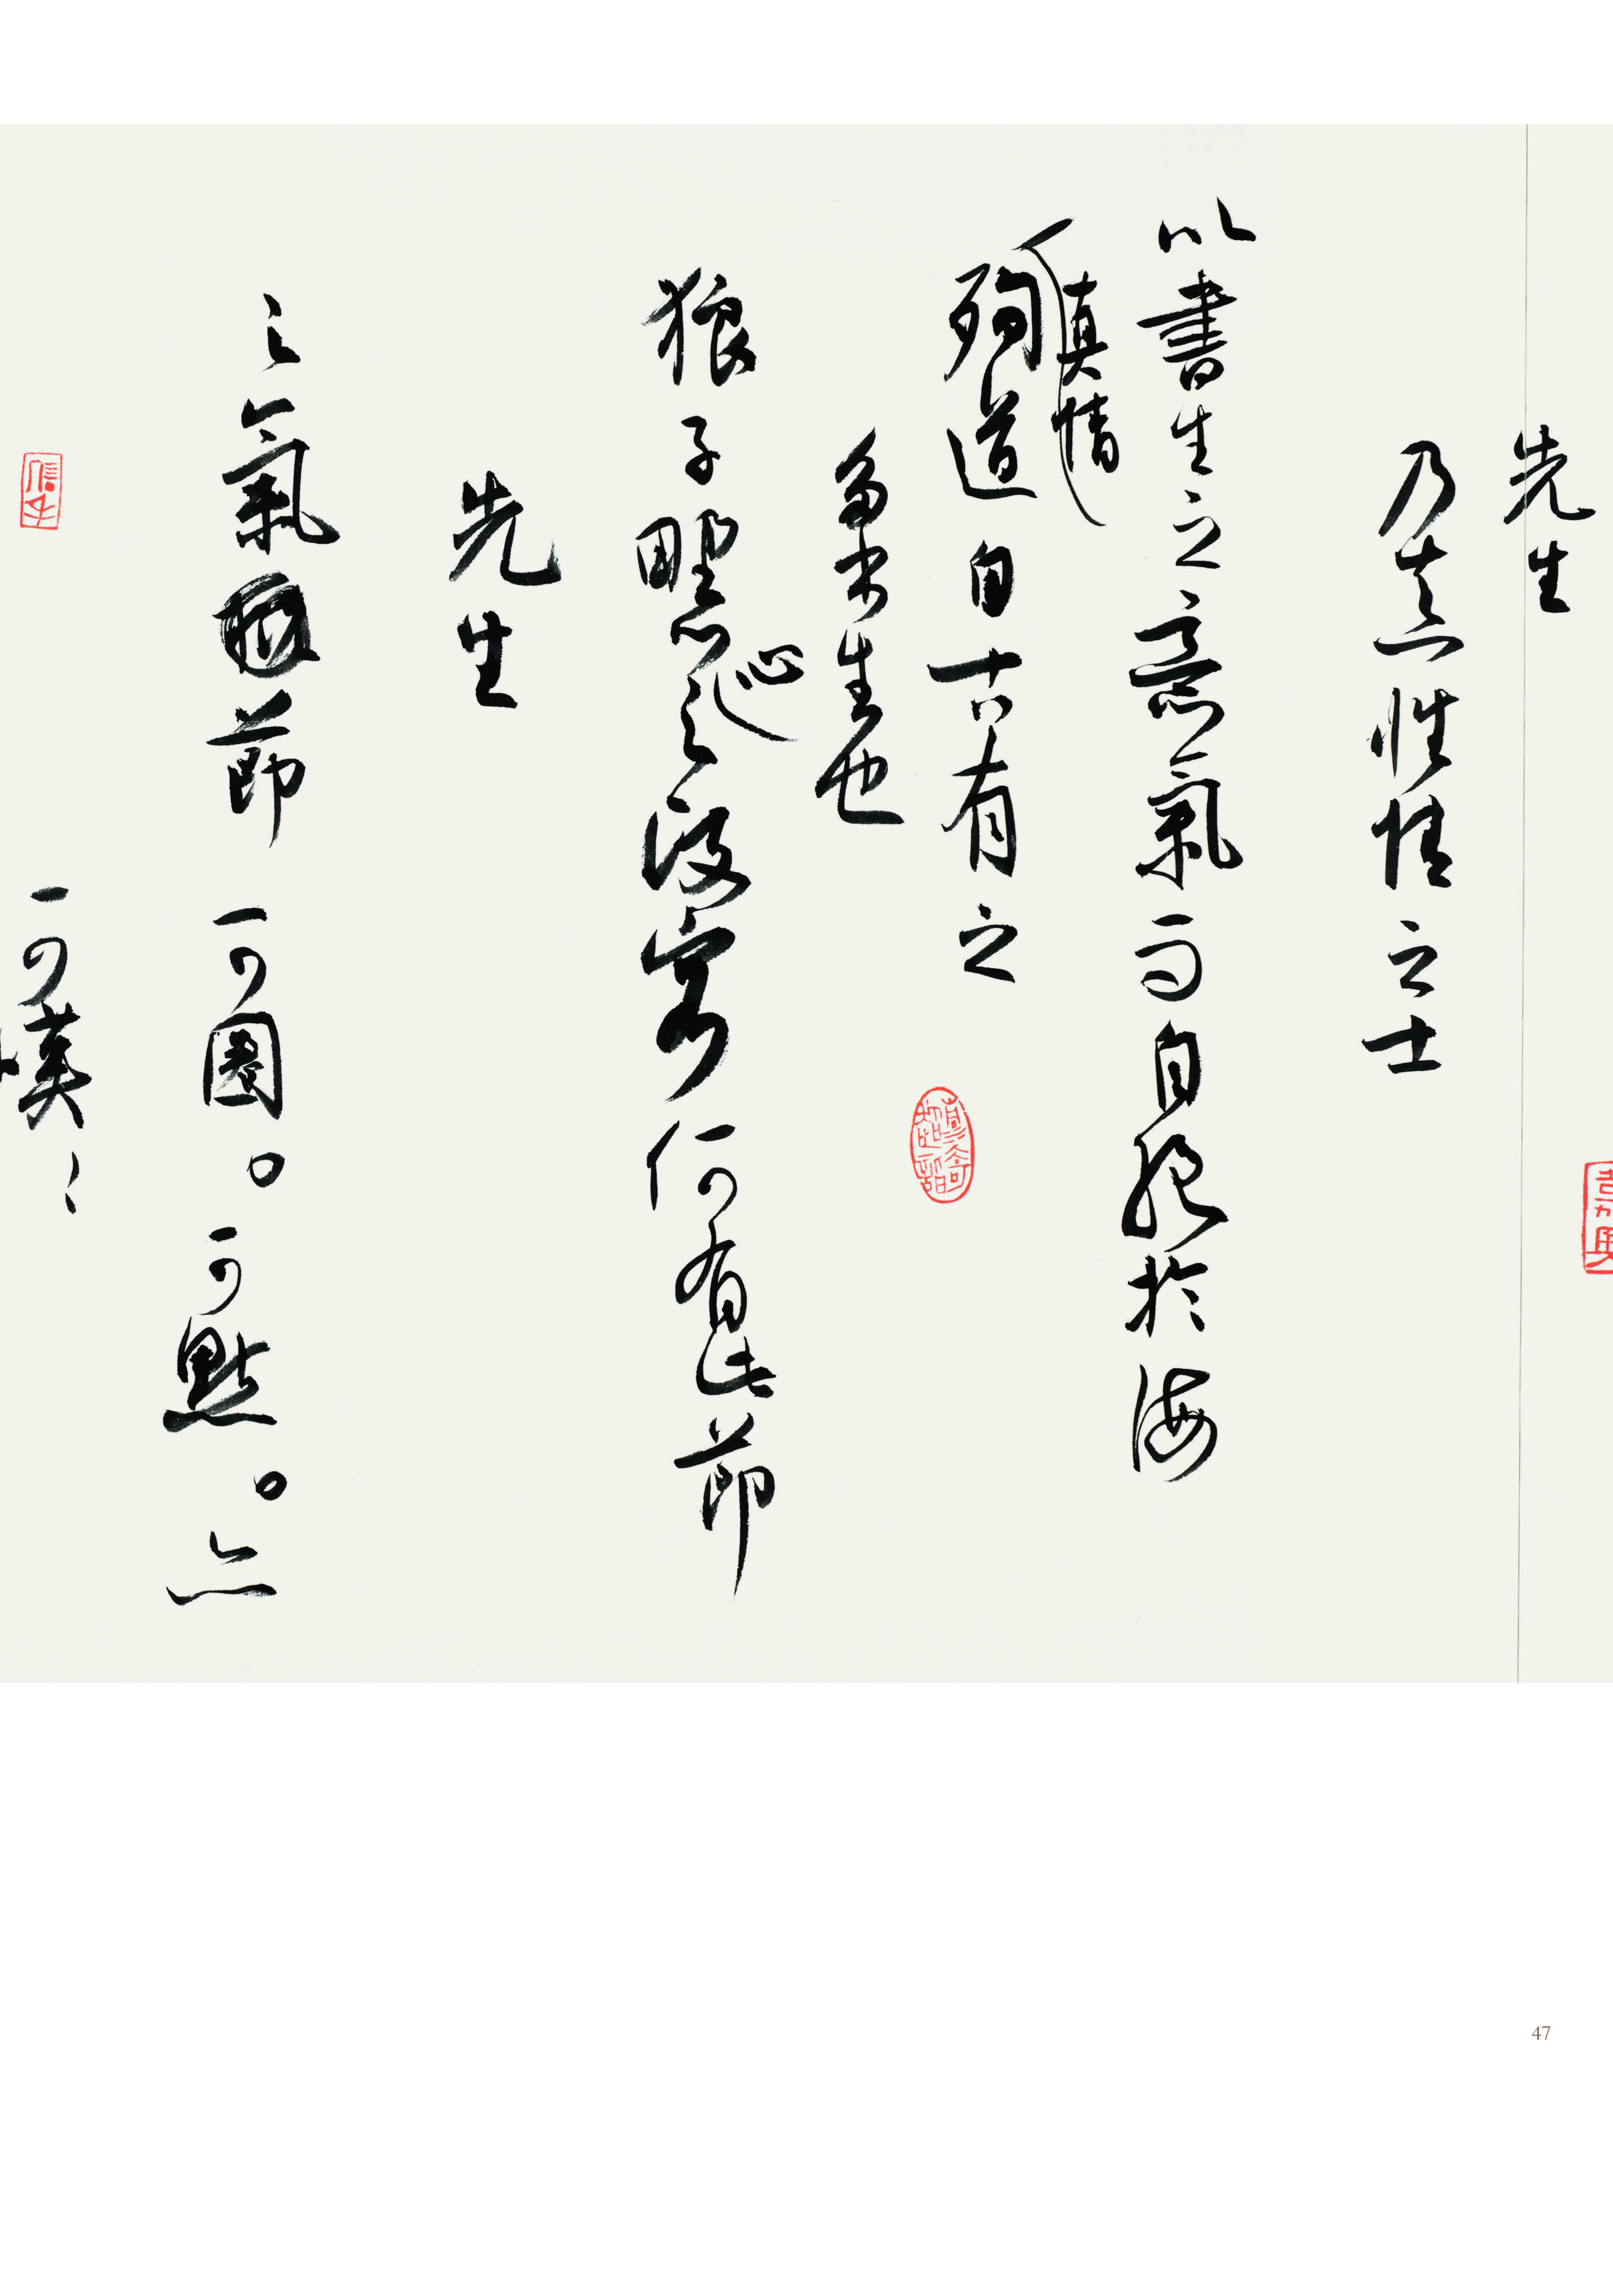 先生
乃真性情之士
以書生之意氣而自絕於海
真情
殉道自古有之
生也
狼子野心之何有此節
先生
之氣節可圈。可點。亦
可嘆
47